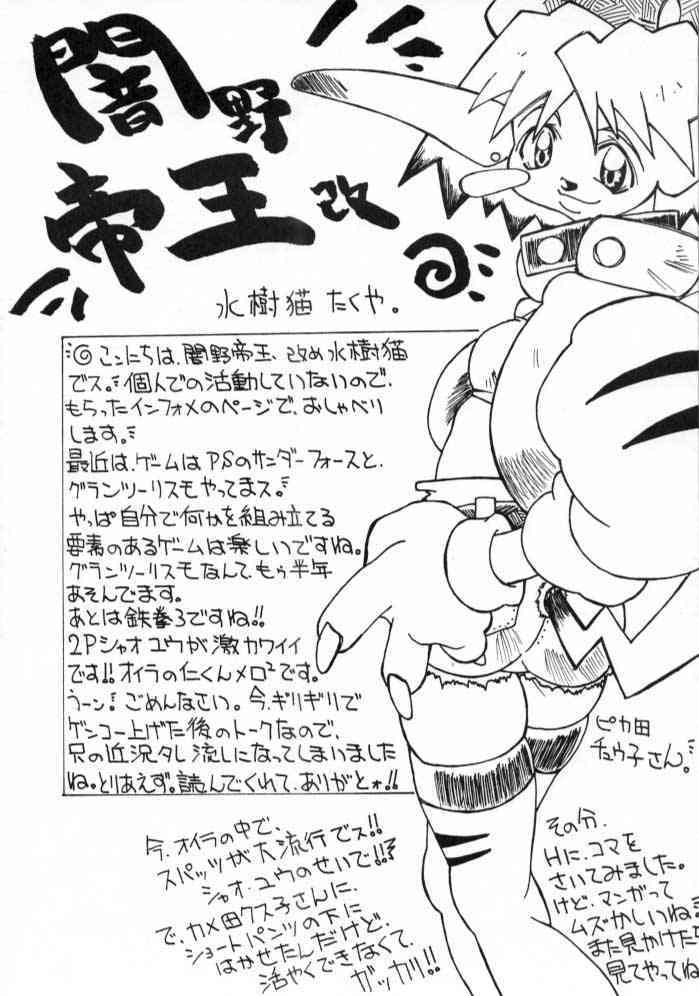 闇野
帝王 改
水樹猫 たくや。
◎こんにちは、闇野帝王、改め水樹猫
でス。個人での活動していないので、
もらったインフォメのページで、おしゃべり
します。
最近は、ゲームはPSのサンダーフォースと、
グランツーリスモやってまス。
やっぱ自分で何かを組み立てる
要素のあるゲームは楽しいですね。
グランツーリスモなんて、もぅ半年
あそんでます。
あとは鉄拳3ですね!!
2Pシャオユウが激カワイイ
です!!オイラの仁くんメロ²です。
うーン!ごめんなさい。今、ギリギリで
ゲンコー上げた後のトークなので、
只の近況タレ流しになってしまいました
ね。とりあえず。読んでくれて、ありがとォ!!
ピカ田
チュウ子さん。
今、オイラの中で、
スパッツが大流行でス!!
シャオ・ユウのせいで!!
で、カメ田クス子さんに、
ショートパンツの下に
はかせたんだけど、
活やくできなくて、
ガッカリ!!
その分、
Hに、コマを
さいてみました。
けど、マンガって
ムズかしいね。
また見かけたら
見てやってね